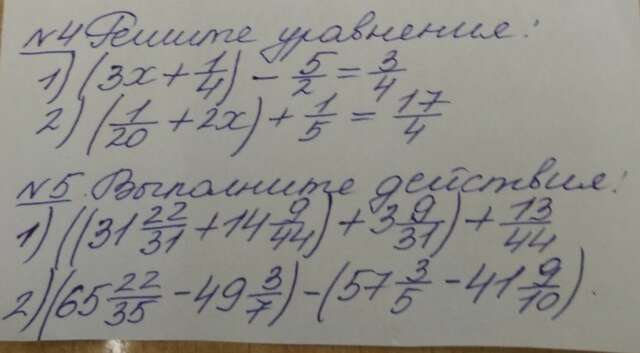 №4 Решите уравнения:
1) (3x + 1/4) - 5/2 = 3/4
2) (1/20 + 2x) + 1/5 = 17/4
№5. Выполните действия:
1) ((31 22/31 + 14 9/44) + 3 9/31) + 13/44
2) (65 22/35 - 49 3/7) - (57 3/5 - 41 9/10).